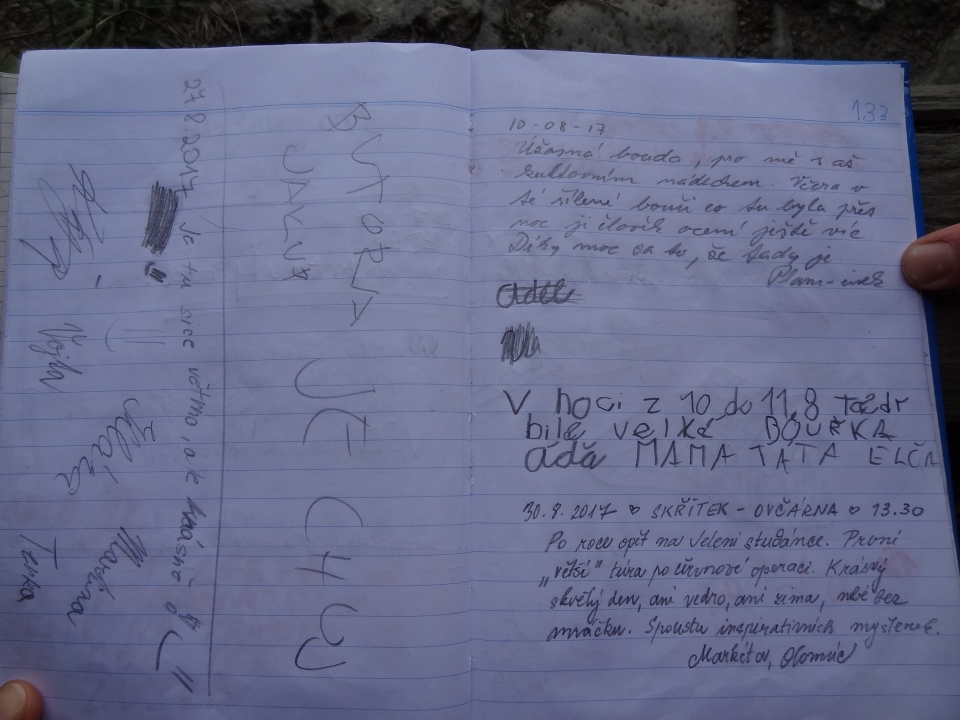 27.8.2017 Je tu sice větrno, ale krásně
Vojta
Klára
Martina
Terka
JE
133
10-08-17
Úžasná bouda, pro mě s až
kultovním nádechem. Včera v
té šílené bouři co tu byla přes
noc ji člověk ocení ještě víc
Díky moc za to, že tady je.
V noci z 10 do 11.8 tadi
bile velká BOUŘKA
áďa MAMA TATA ELČA
30.8.2017 ♡ SKŘÍTEK - OVČÁRNA ♡ 13.30
Po roce opět na Jelení studánce. První
„větší" túra po červnové operaci. Krásný
skvělý den, ani vedro, ani zima, nebe bez
mráčku. Spousta inspirativních myšlenek.
Markéta, Olomouc